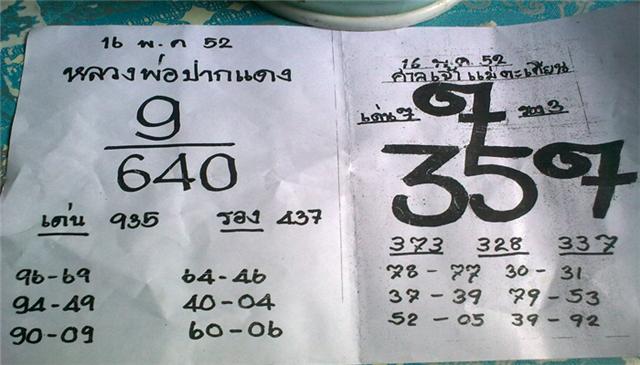 16 พ.ค 52
หลวงพ่อปากแดง
9
640
เด่น 935 รอง 437
96-69 64-46
94-49 40-04
90-09 60-06
16 พ.ค 52
ศาลเจ้าแม่ตะเคียน
เด่น 7 7 รอง 3
357
373 328 337
78-77 30-31
37-39 79-53
52-05 39-92